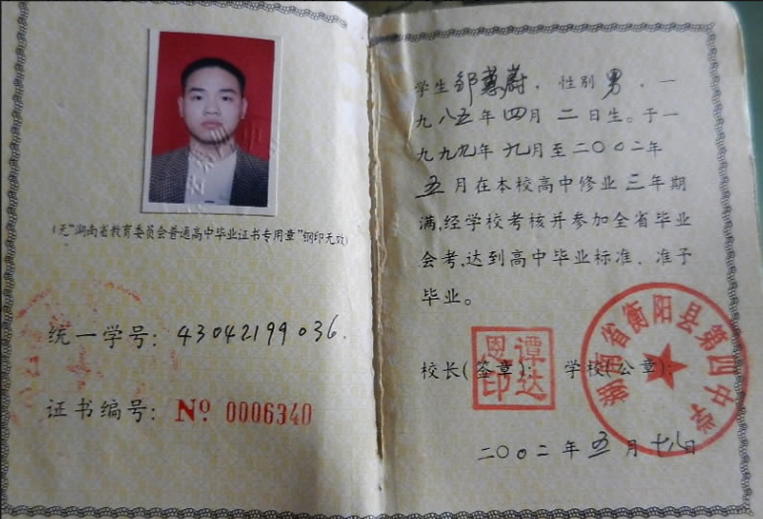 (无"湖南省教育委员会普通高中毕业证书专用章"钢印无效)
统一学号: 43042199036.
证书编号: No 0006340
学生邹蕙蔚,性别男,一
九八五年四月二日生。于一
九九九年九月至二〇〇二年
五月在本校高中修业三年期
满,经学校考核并参加全省毕业
会考,达到高中毕业标准,准予
毕业。
校长(签章): 学校(公章):
谭达恩印
湖南省衡阳县第四中学
二〇〇二年五月十八日